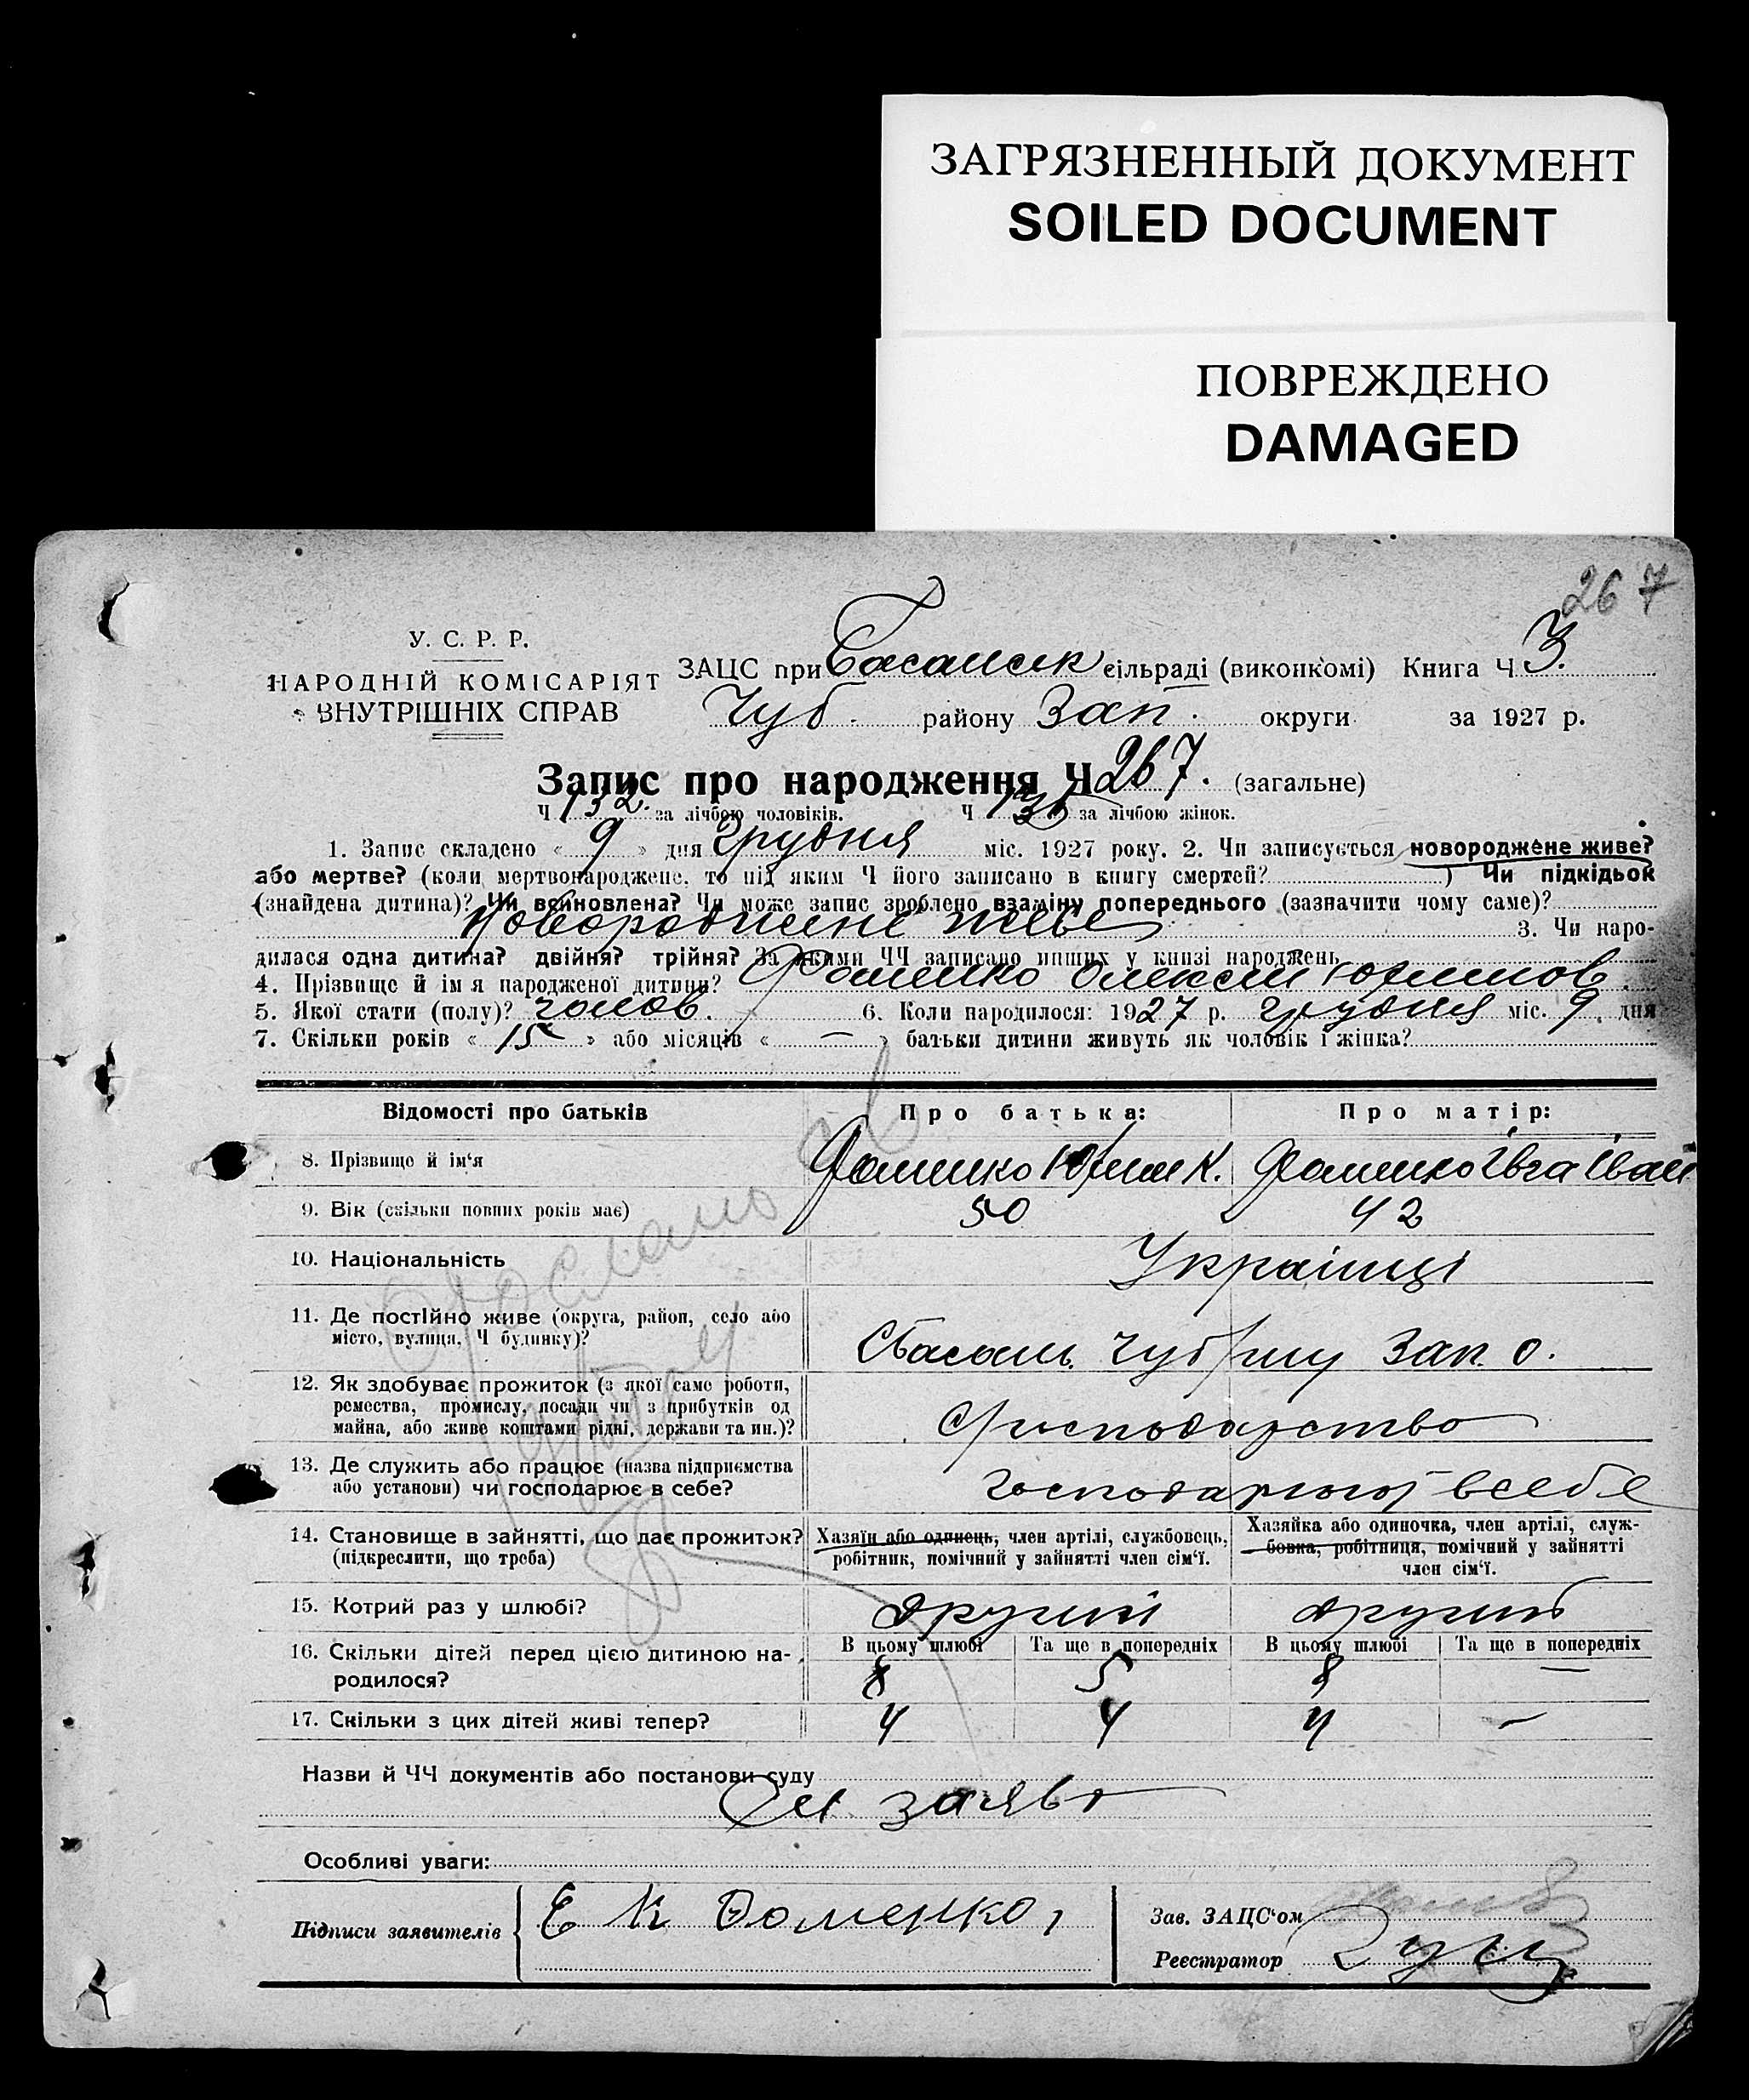 ЗАГРЯЗНЕННЫЙ ДОКУМЕНТ
SOILED DOCUMENT
ПОВРЕЖДЕНО
DAMAGED
267
У. С. Р. Р.
НАРОДНІЙ КОМІСАРІЯТ
ВНУТРІШНІХ СПРАВ
ЗАЦС при Басанськ сільраді (виконкомі) Книга Ч 3.
Чуб. району Зап. округи за 1927 р.
Запис про народження Ч 267. (загальне)
Ч 132. за лічбою чоловіків. Ч 135 за лічбою жінок.
1. Запис складено « 9 » дня Грудня міс. 1927 року. 2. Чи записується новороджене живе?
або мертве? (коли мертвонароджене, то під яким Ч його записано в книгу смертей? ) Чи підкідьок
(знайдена дитина)? Чи всиновлена? Чи може запис зроблено взаміну попереднього (зазначити чому саме)?
Новороджене живе 3. Чи наро-
дилася одна дитина? двійня? трійня? За якими ЧЧ записано инших у книзі народжень
4. Прізвище й ім я народженої дитини? Фоменко Олексій Юхимов.
5. Якої стати (полу)? чолов. 6. Коли народилося: 1927 р. грудня міс. 9. дня
7. Скільки років « 15 » або місяців « — » батьки дитини живуть як чоловік і жінка?
Відомості про батьків Про батька: Про матір:
8. Прізвище й ім'я Фоменко Юхим К. Фоменко Івга Іван
9. Вік (скільки повних років має) 50 42
10. Національність Українці
11. Де постійно живе (округа, район, село або
місто, вулиця, Ч будинку)? С Басань Чуб рну Зап. о.
12. Як здобуває прожиток (з якої саме роботи,
ремества, промислу, посади чи з прибутків од
майна, або живе коштами рідні, держави та ин.)? Господарство
13. Де служить або працює (назва підприємства
або установи) чи господарює в себе? господарюют всебе
14. Становище в зайнятті, що дає прожиток?
(підкреслити, що треба)
Хазяїн або одинець, член артілі, службовець,
робітник, помічний у зайнятті член сім'ї.
Хазяйка або одиночка, член артілі, служ-
бовка, робітниця, помічний у зайнятті
член сім'ї.
15. Котрий раз у шлюбі? другий другий
В цьому шлюбі Та ще в попередніх В цьому шлюбі Та ще в попередніх
16. Скільки дітей перед цією дитиною на-
родилося? 8 5 8 —
17. Скільки з цих дітей живі тепер? 4 4 4 —
Назви й ЧЧ документів або постанови суду
заяв
Особливі уваги:
Підписи заявителів Е К Фоменко,
Зав. ЗАЦС'ом
Реєстратор